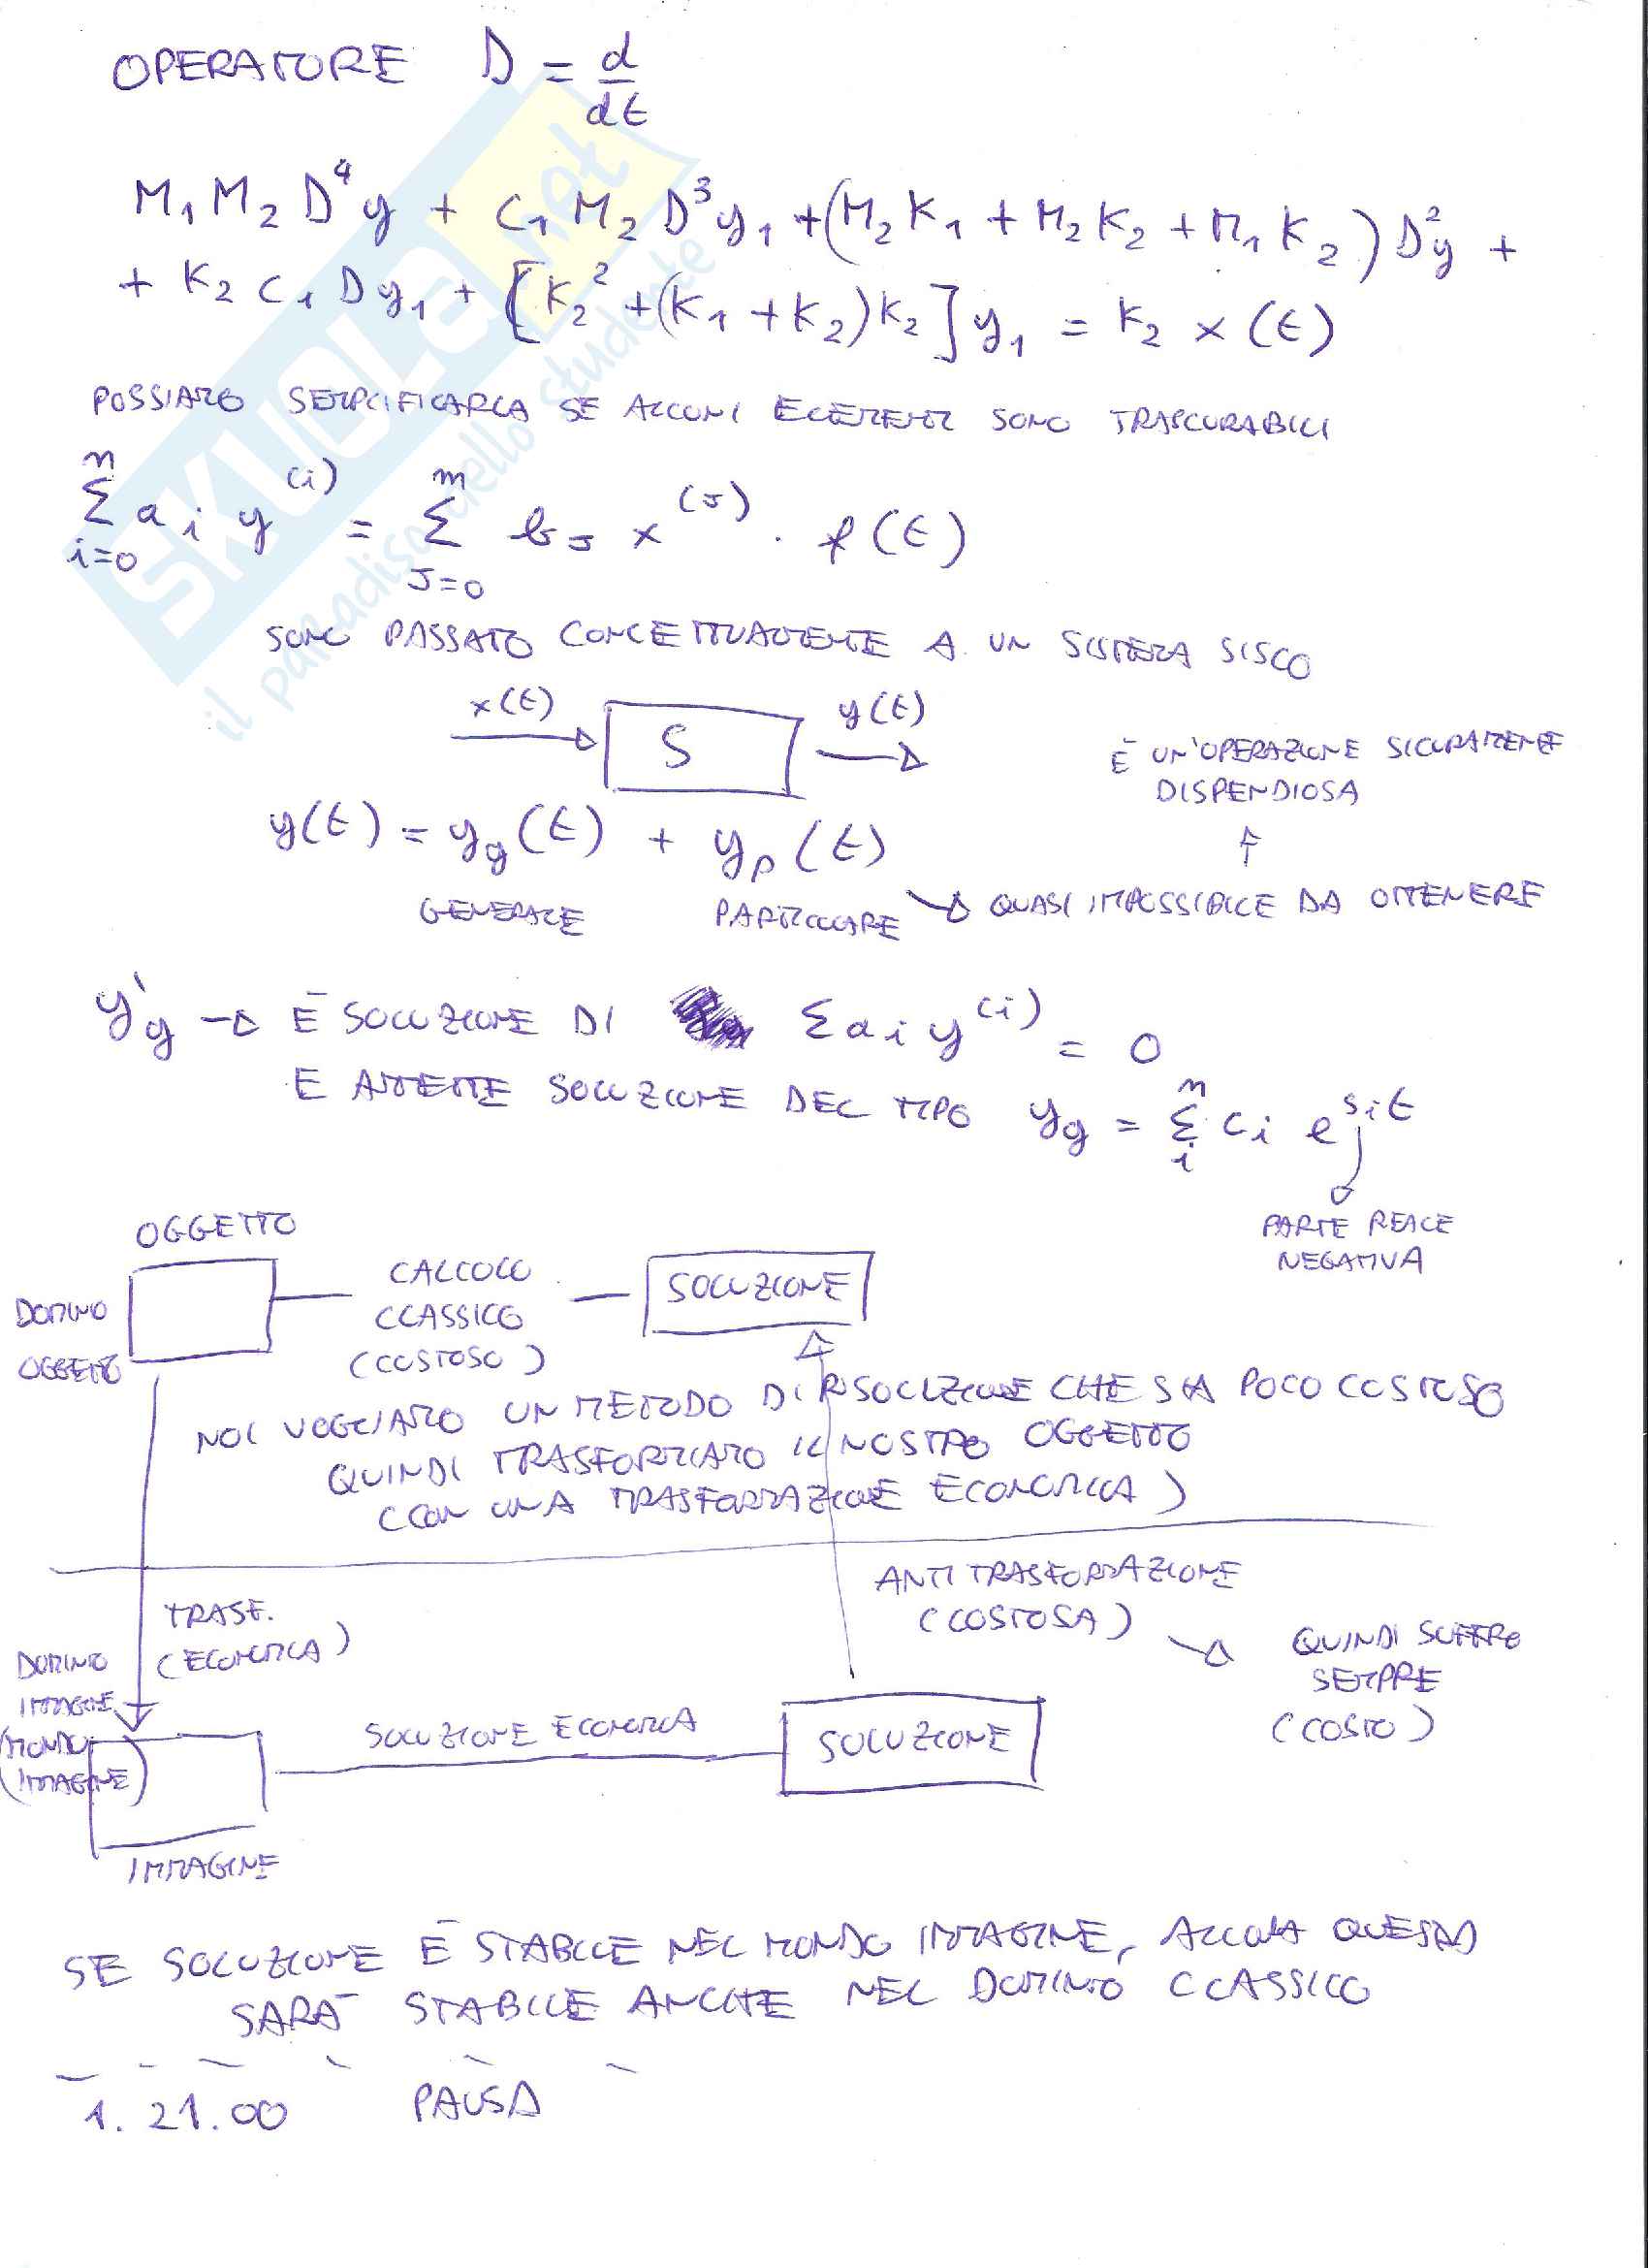 OPERATORE D = d/dt
M₁M₂D⁴y + C₁M₂D³y₁ + (M₂K₁ + M₂K₂ + M₁K₂)D²y +
+ K₂C₁Dy₁ + [K₂² + (K₁ + K₂)K₂]y₁ = K₂ x(t)
POSSIAMO SEMPLIFICARLA SE ALCUNI ELEMENTI SONO TRASCURABILI
Σ_{i=0}^{n} a_i y^{(i)} = Σ_{J=0}^{m} b_J x^{(J)} · f(t)
SONO PASSATO CONCETTUALMENTE A UN SISTEMA SISCO
x(t) S y(t)
È UN'OPERAZIONE SICURAMENTE
DISPENDIOSA
y(t) = y_g(t) + y_p(t)
GENERALE PARTICOLARE → QUASI IMPOSSIBILE DA OTTENERE
y'_g → È SOLUZIONE DI Σ a_i y^{(i)} = 0
E AMMETTE SOLUZIONE DEL TIPO y_g = Σ_{i}^{n} c_i e^{s_i t}
PARTE REALE
NEGATIVA
OGGETTO
DOMINIO
OGGETTO
CALCOLO
CLASSICO
(COSTOSO)
SOLUZIONE
NOI VOGLIAMO UN METODO DI RISOLUZIONE CHE SIA POCO COSTOSO
QUINDI TRASFORMIAMO IL NOSTRO OGGETTO
(CON UNA TRASFORMAZIONE ECONOMICA)
TRASF.
(ECONOMICA)
ANTITRASFORMAZIONE
(COSTOSA)
→ QUINDI SOFFRO
SEMPRE
(COSTO)
DOMINIO
IMMAGINE
(MONDO
IMMAGINE)
SOLUZIONE ECONOMICA
SOLUZIONE
IMMAGINE
SE SOLUZIONE È STABILE NEL MONDO IMMAGINE, ALLORA QUESTA
SARÀ STABILE ANCHE NEL DOMINIO CLASSICO
1.21.00 PAUSA
SKUOLA.net
il paradiso dello studente